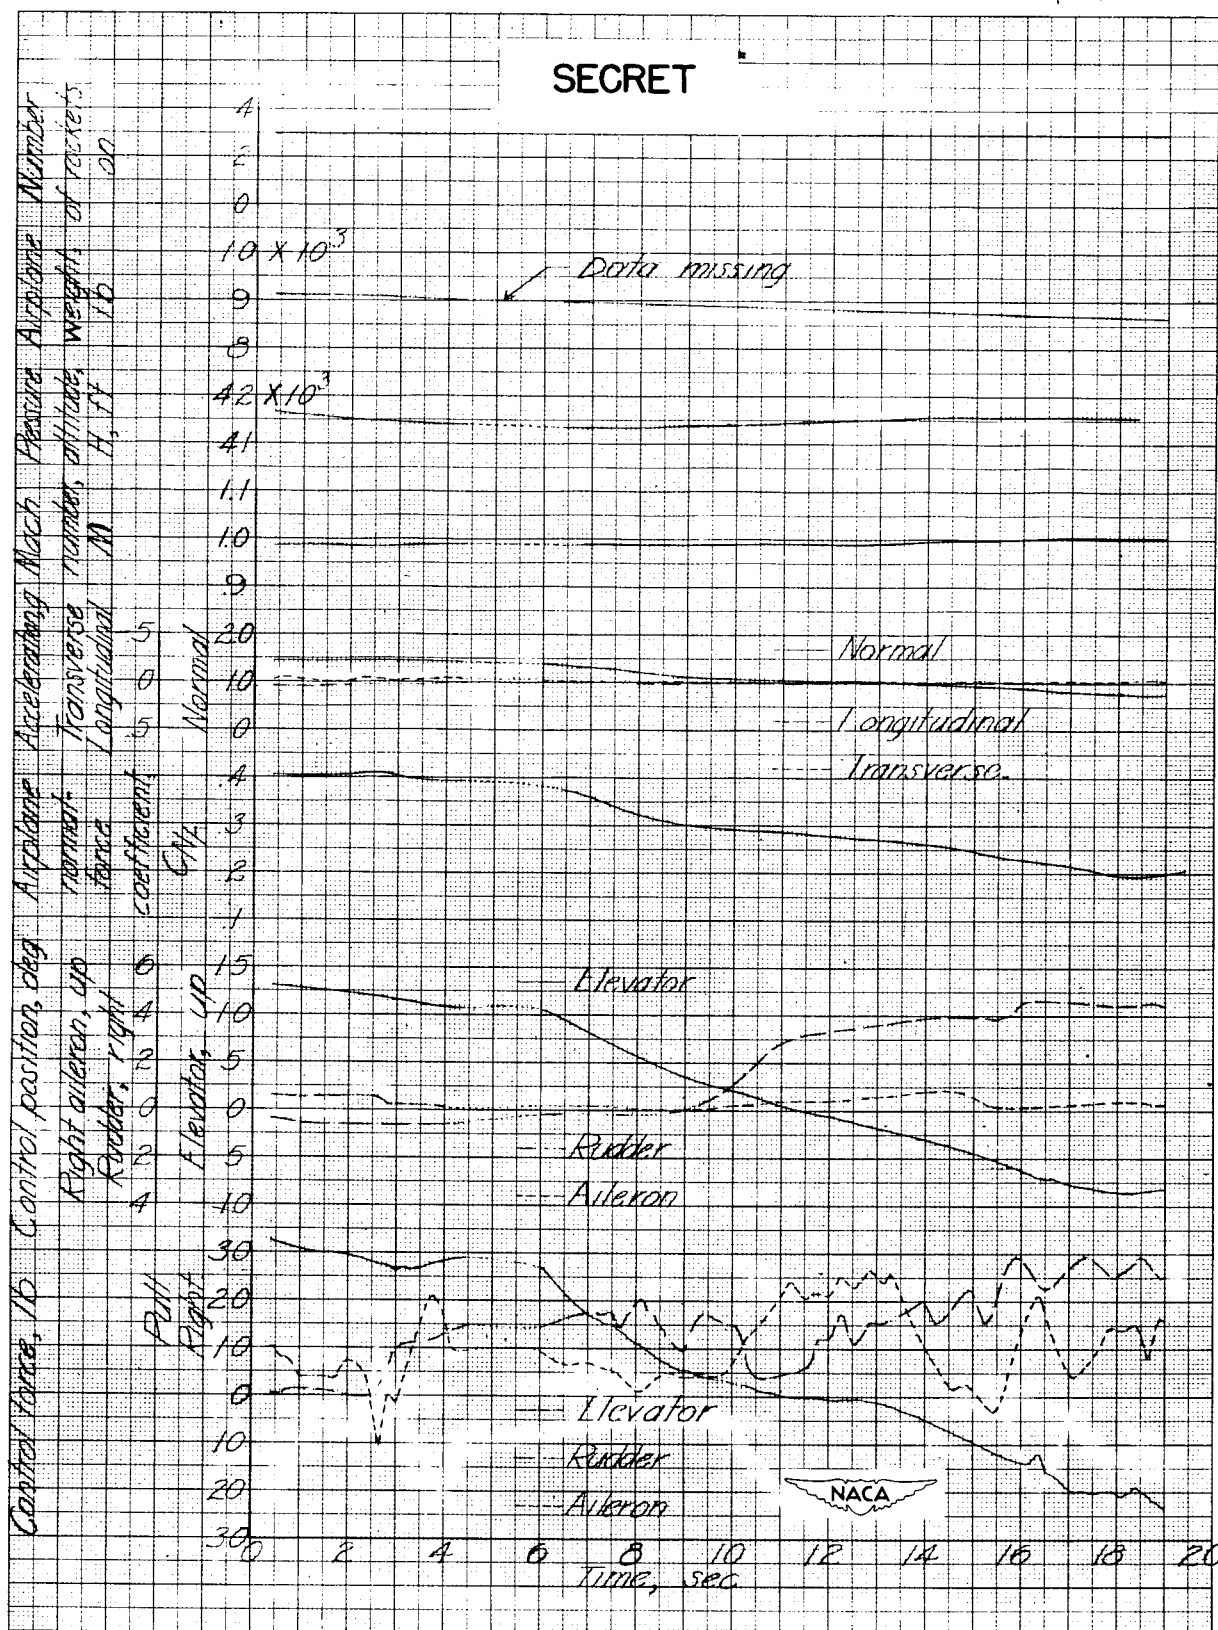 SECRET
Number
of rockets
on
4
2
0
Airplane
weight,
lb
10 X 10^3
9
8
Data missing
Pressure
altitude,
H, ft
42 X 10^3
41
Mach
number,
M
1.1
1.0
.9
Acceleration, g
Transverse
Longitudinal
.5
0
.5
Normal
2.0
1.0
0
Normal
Longitudinal
Transverse
Airplane
normal-
force
coefficient,
.4
.3
.2
.1
Control position, deg
Right aileron, up
Rudder, right
6
4
2
0
2
4
Elevator, up
15
10
5
0
5
10
Elevator
Rudder
Aileron
Control force, lb
Pull
Right
30
20
10
0
10
20
30
Elevator
Rudder
Aileron
NACA
0 2 4 6 8 10 12 14 16 18 20
Time, sec